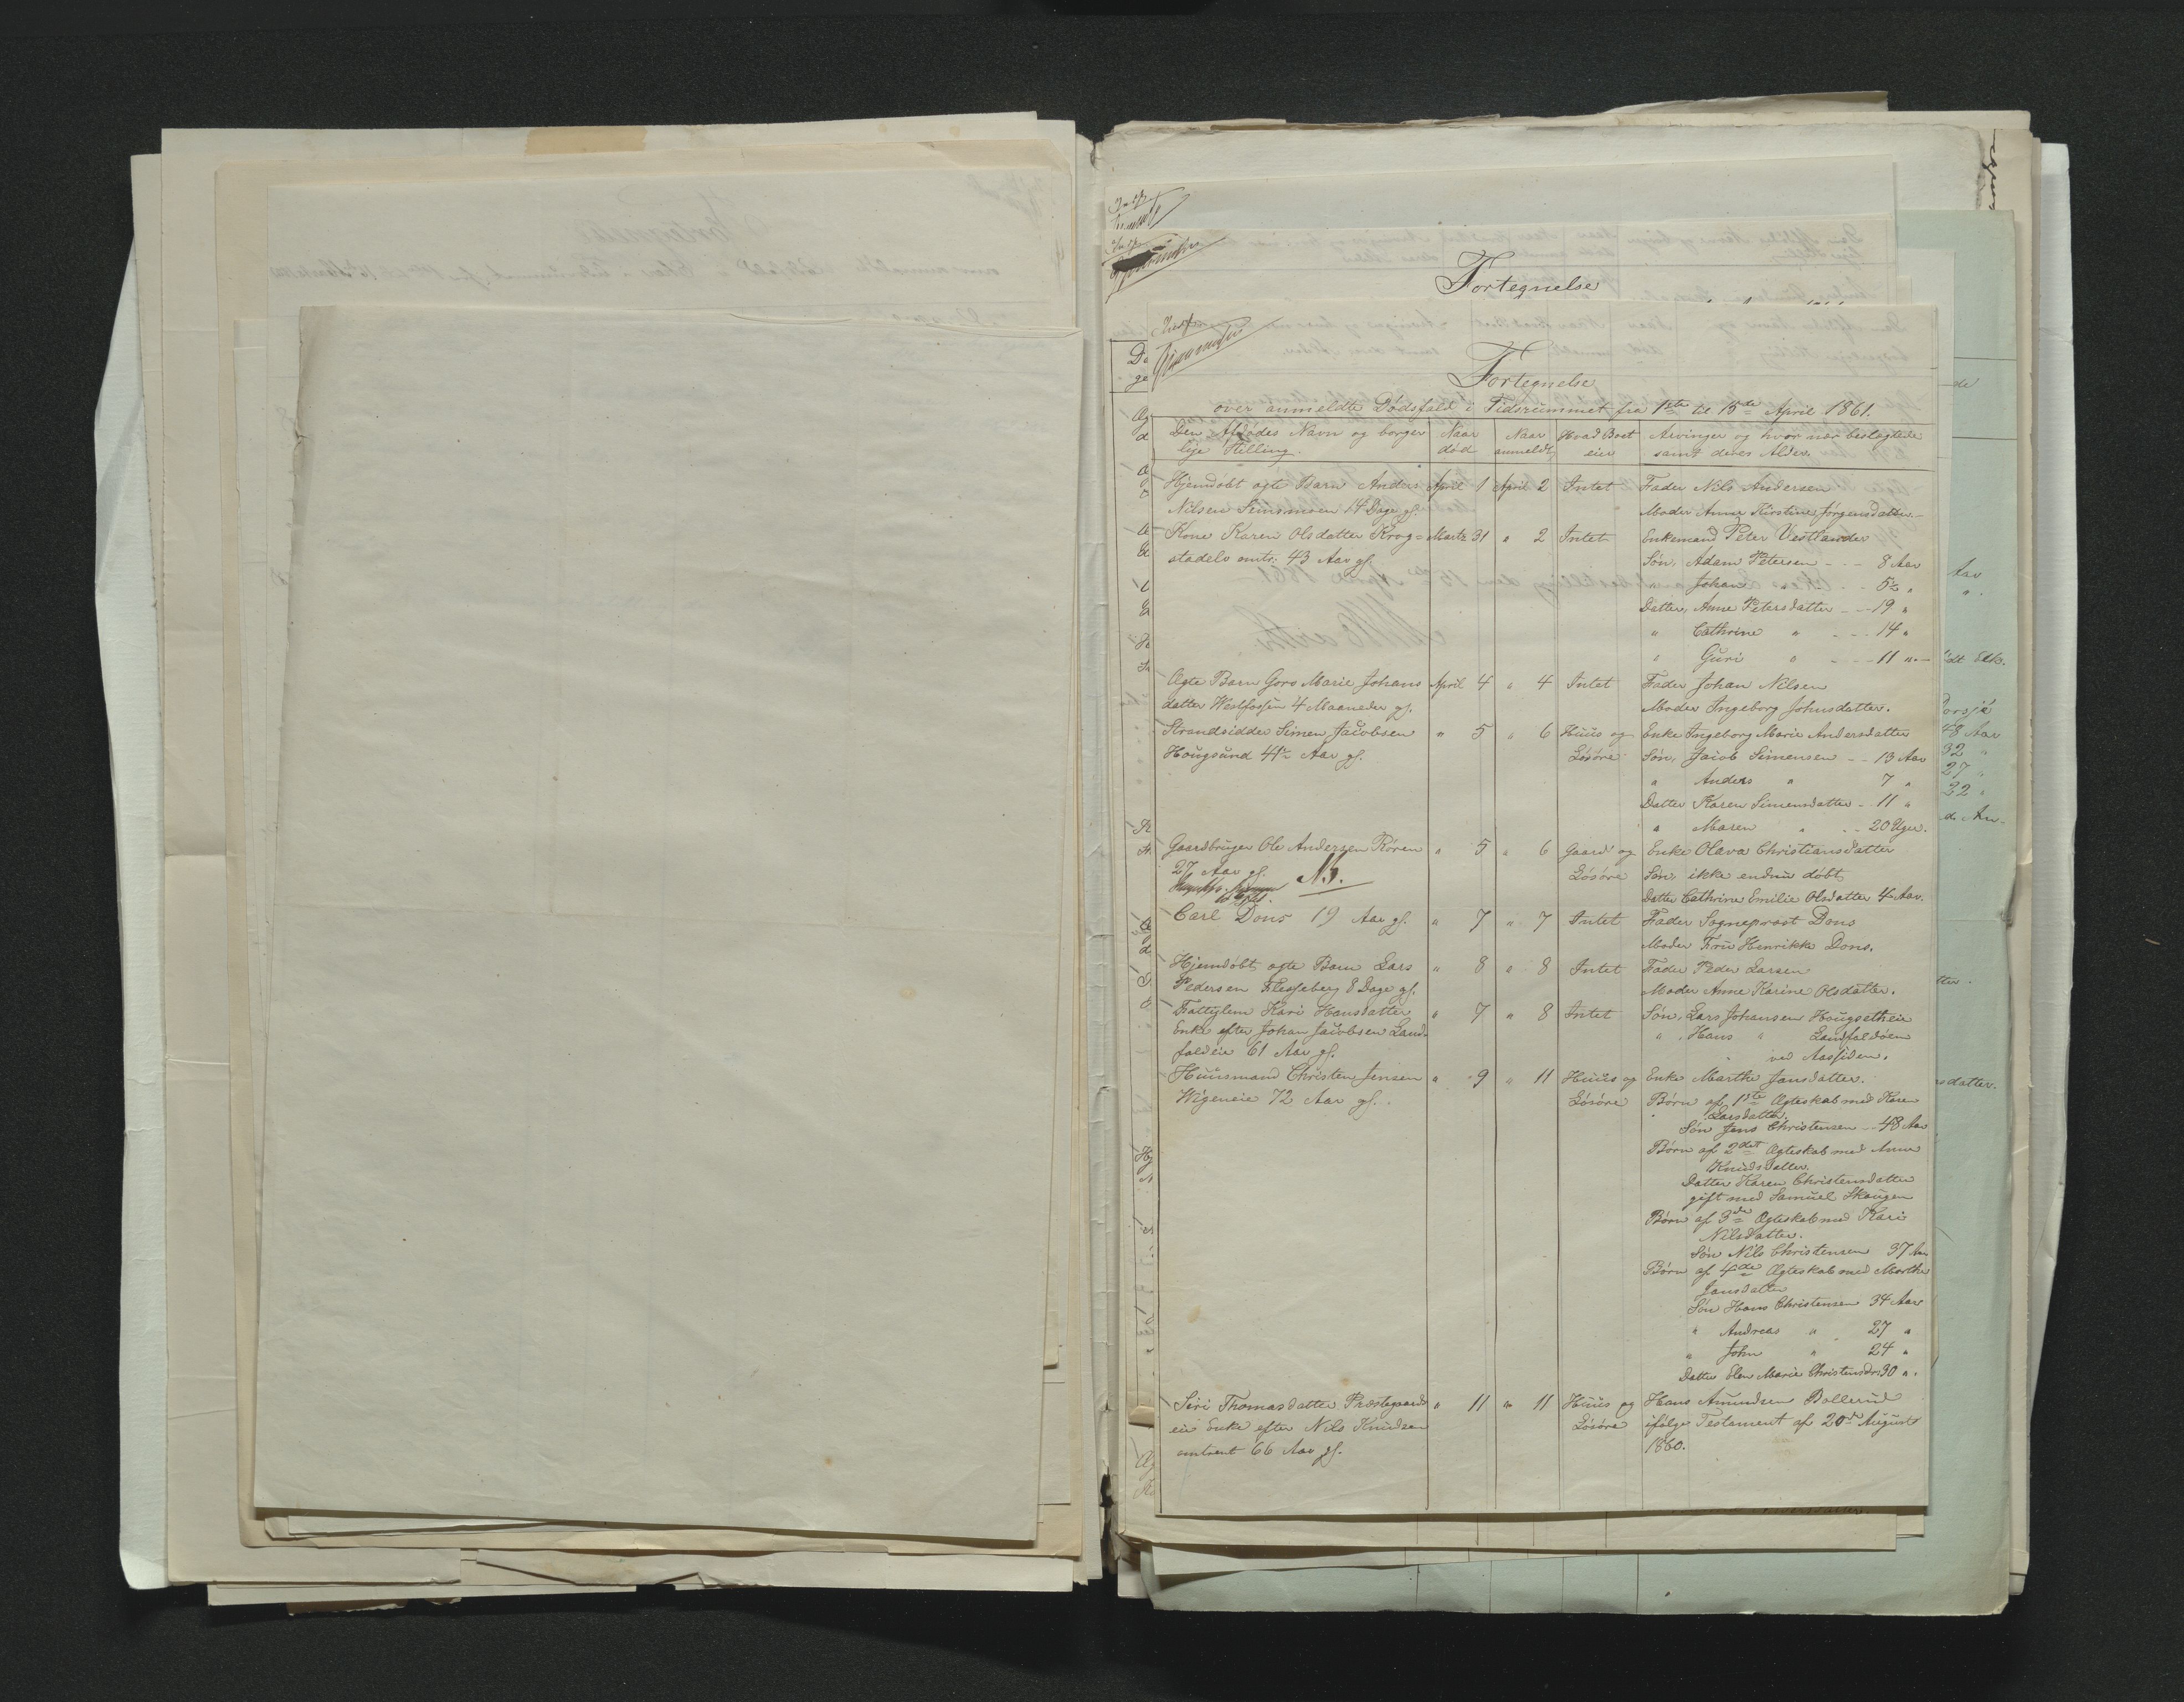 Fortegnelse
Fortegnelse
over anmeldte Dødsfald i Tidsrummet fra 1ste til 15de April 1861.
Den Afdødes Navn og borger Naar Naar Hvad Boet Arvinger og hvor nær beslægtede
lige Stilling. død anmeldt, eier samt deres Alder.
Hjemdøbt ægte Barn Anders April 1 April 2 Intet Fader Nils Andersen
Nilsen 14 Dage gl. Moder Anne Kirstine Jørgensdatter.
Kone Karen Olsdatter Krog= Marts 31 " 2 Intet Enkemand Peter Vestlander
stadelv omtr. 43 Aar gl. Søn, Adam Petersen - - - 8 Aar
" Johan " - - 5½ "
Datter, Anne Petersdatter - - 19 "
" Cathrine " - - - 14 "
" Guri " - - - 11 " -
Ægte Barn Goro Marie Johans April 4 " 4 Intet Fader Johan Nilsen
datter Westfossen 4 Maaneder gl. Moder Ingeborg Johnsdatter.
Strandsidder Simen Jacobsen " 5 " 6 Huus og Enke Ingeborg Marie Andersdatter
Hougsund 41½ Aar gl. Løsøre Søn, Jacob Simensen - - 13 Aar
" Anders " 7 "
Datter Karen Simensdatter - 11 "
" Maren " - - 20 Uger.
Gaardbruger Ole Andersen Røren " 5 " 6 Gaard og Enke Olava Christiansdatter
27 Aar gl. N.B. Løsøre Søn, ikke endnu døbt,
Datter Cathrine Emilie Olsdatter 4 Aar.
Carl Dons 19 Aar gl. " 7 " 7 Intet Fader Sognepræst Dons
Moder Fru Henrikke Dons.
Hjemdøbt ægte Barn Lars " 8 " 8 Intet Fader Peder Larsen
Pedersen Flesseberg 8 Dage gl. Moder Anne Karine Olsdatter.
Fattiglem Kari Hansdatter " 7 " 8 Intet Søn, Lars Johansen Hougsetheie
Enke efter Johan Jacobsen Land= " Hans " Landfaldøen
faldeie 61 Aar gl. " ved Aassiden.
Huusmand Christen Jensen " 9 " 11 Huus og Enke Marthe Jansdatter.
Wigeneie 72 Aar gl. Løsøre Børn af 1ste Ægteskab med Karen
Larsdatter.
Søn Jens Christensen - - 48 Aar
Børn af 2det Ægteskab med Anne
Knudsdatter.
Datter Karen Christensdatter
gift med Samuel Skougen
Børn af 3de Ægteskab med Kari
Nilsdatter.
Søn Nils Christensen 37 Aar
Børn af 4de Ægteskab med Marthe
Jansdatter
Søn Hans Christensen 34 Aar
" Andreas " 27 "
" John " 24 "
Datter Elen Marie Christensdr. 30 ".
Siri Thomasdatter Præstegaards " 11 " 11 Huus og Hans Amundsen Bollerud
eie Enke efter Nils Knudsen Løsøre ifølge Testament af 20de August
omtrent 66 Aar gl. 1860.